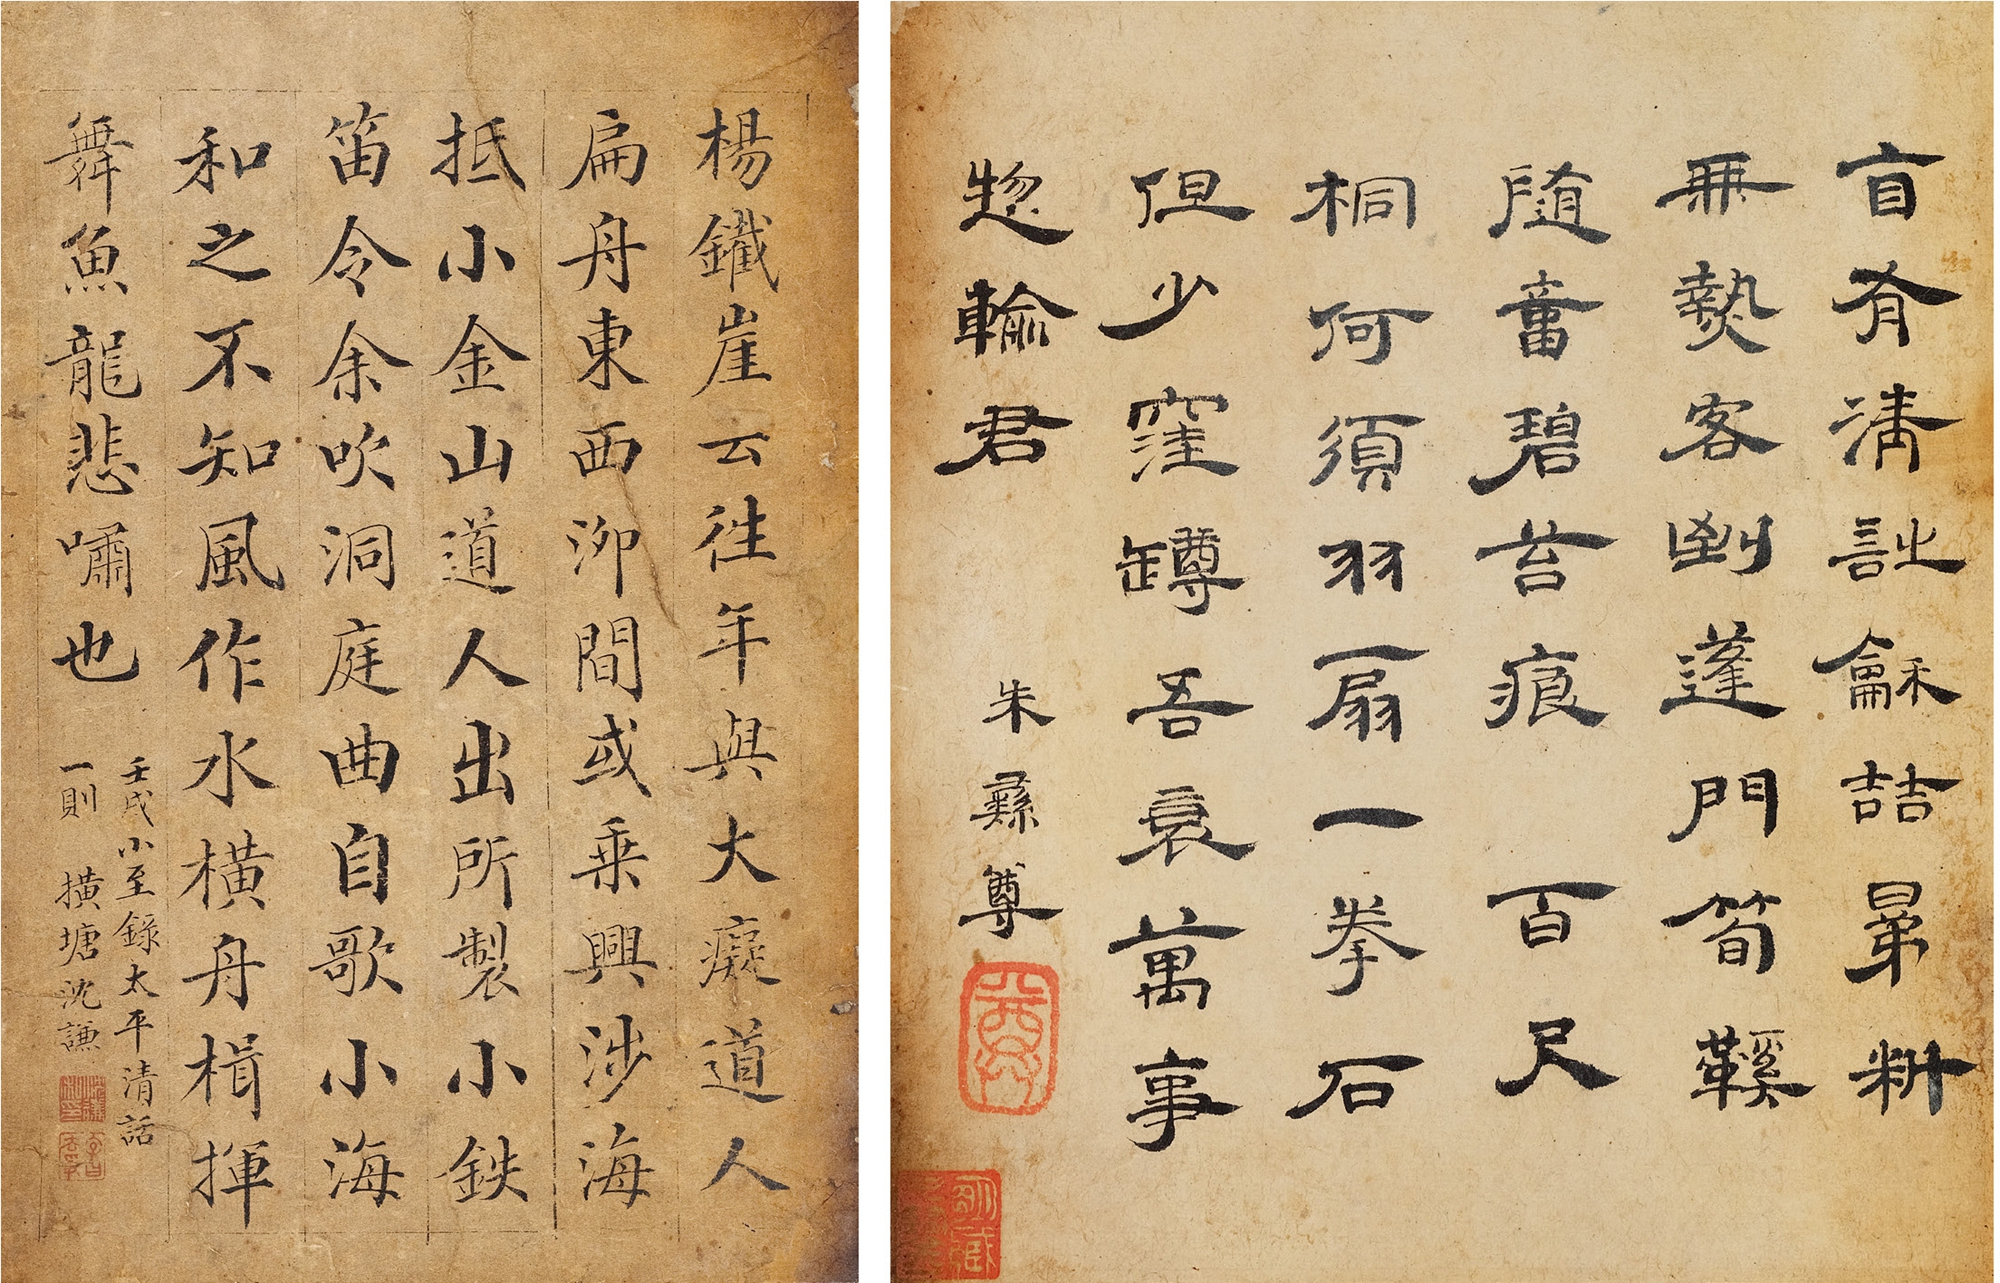 盲有清詘龢喆晜耕
無熱客蓬門筍鞵
随畣碧苔痕 百尺
桐何須羽扇一拳石
但少窪罇吾衰萬事
惣輸君
朱彝尊
楊鐵崖云往年與大癡道人
扁舟東西泖間或乗興涉海
抵小金山道人出所製小鉄
笛令余吹洞庭曲自歌小海
和之不知風作水橫舟楫揮
舞魚龍悲嘯也
壬戌小至錄太平清話
一則 橫塘沈謙